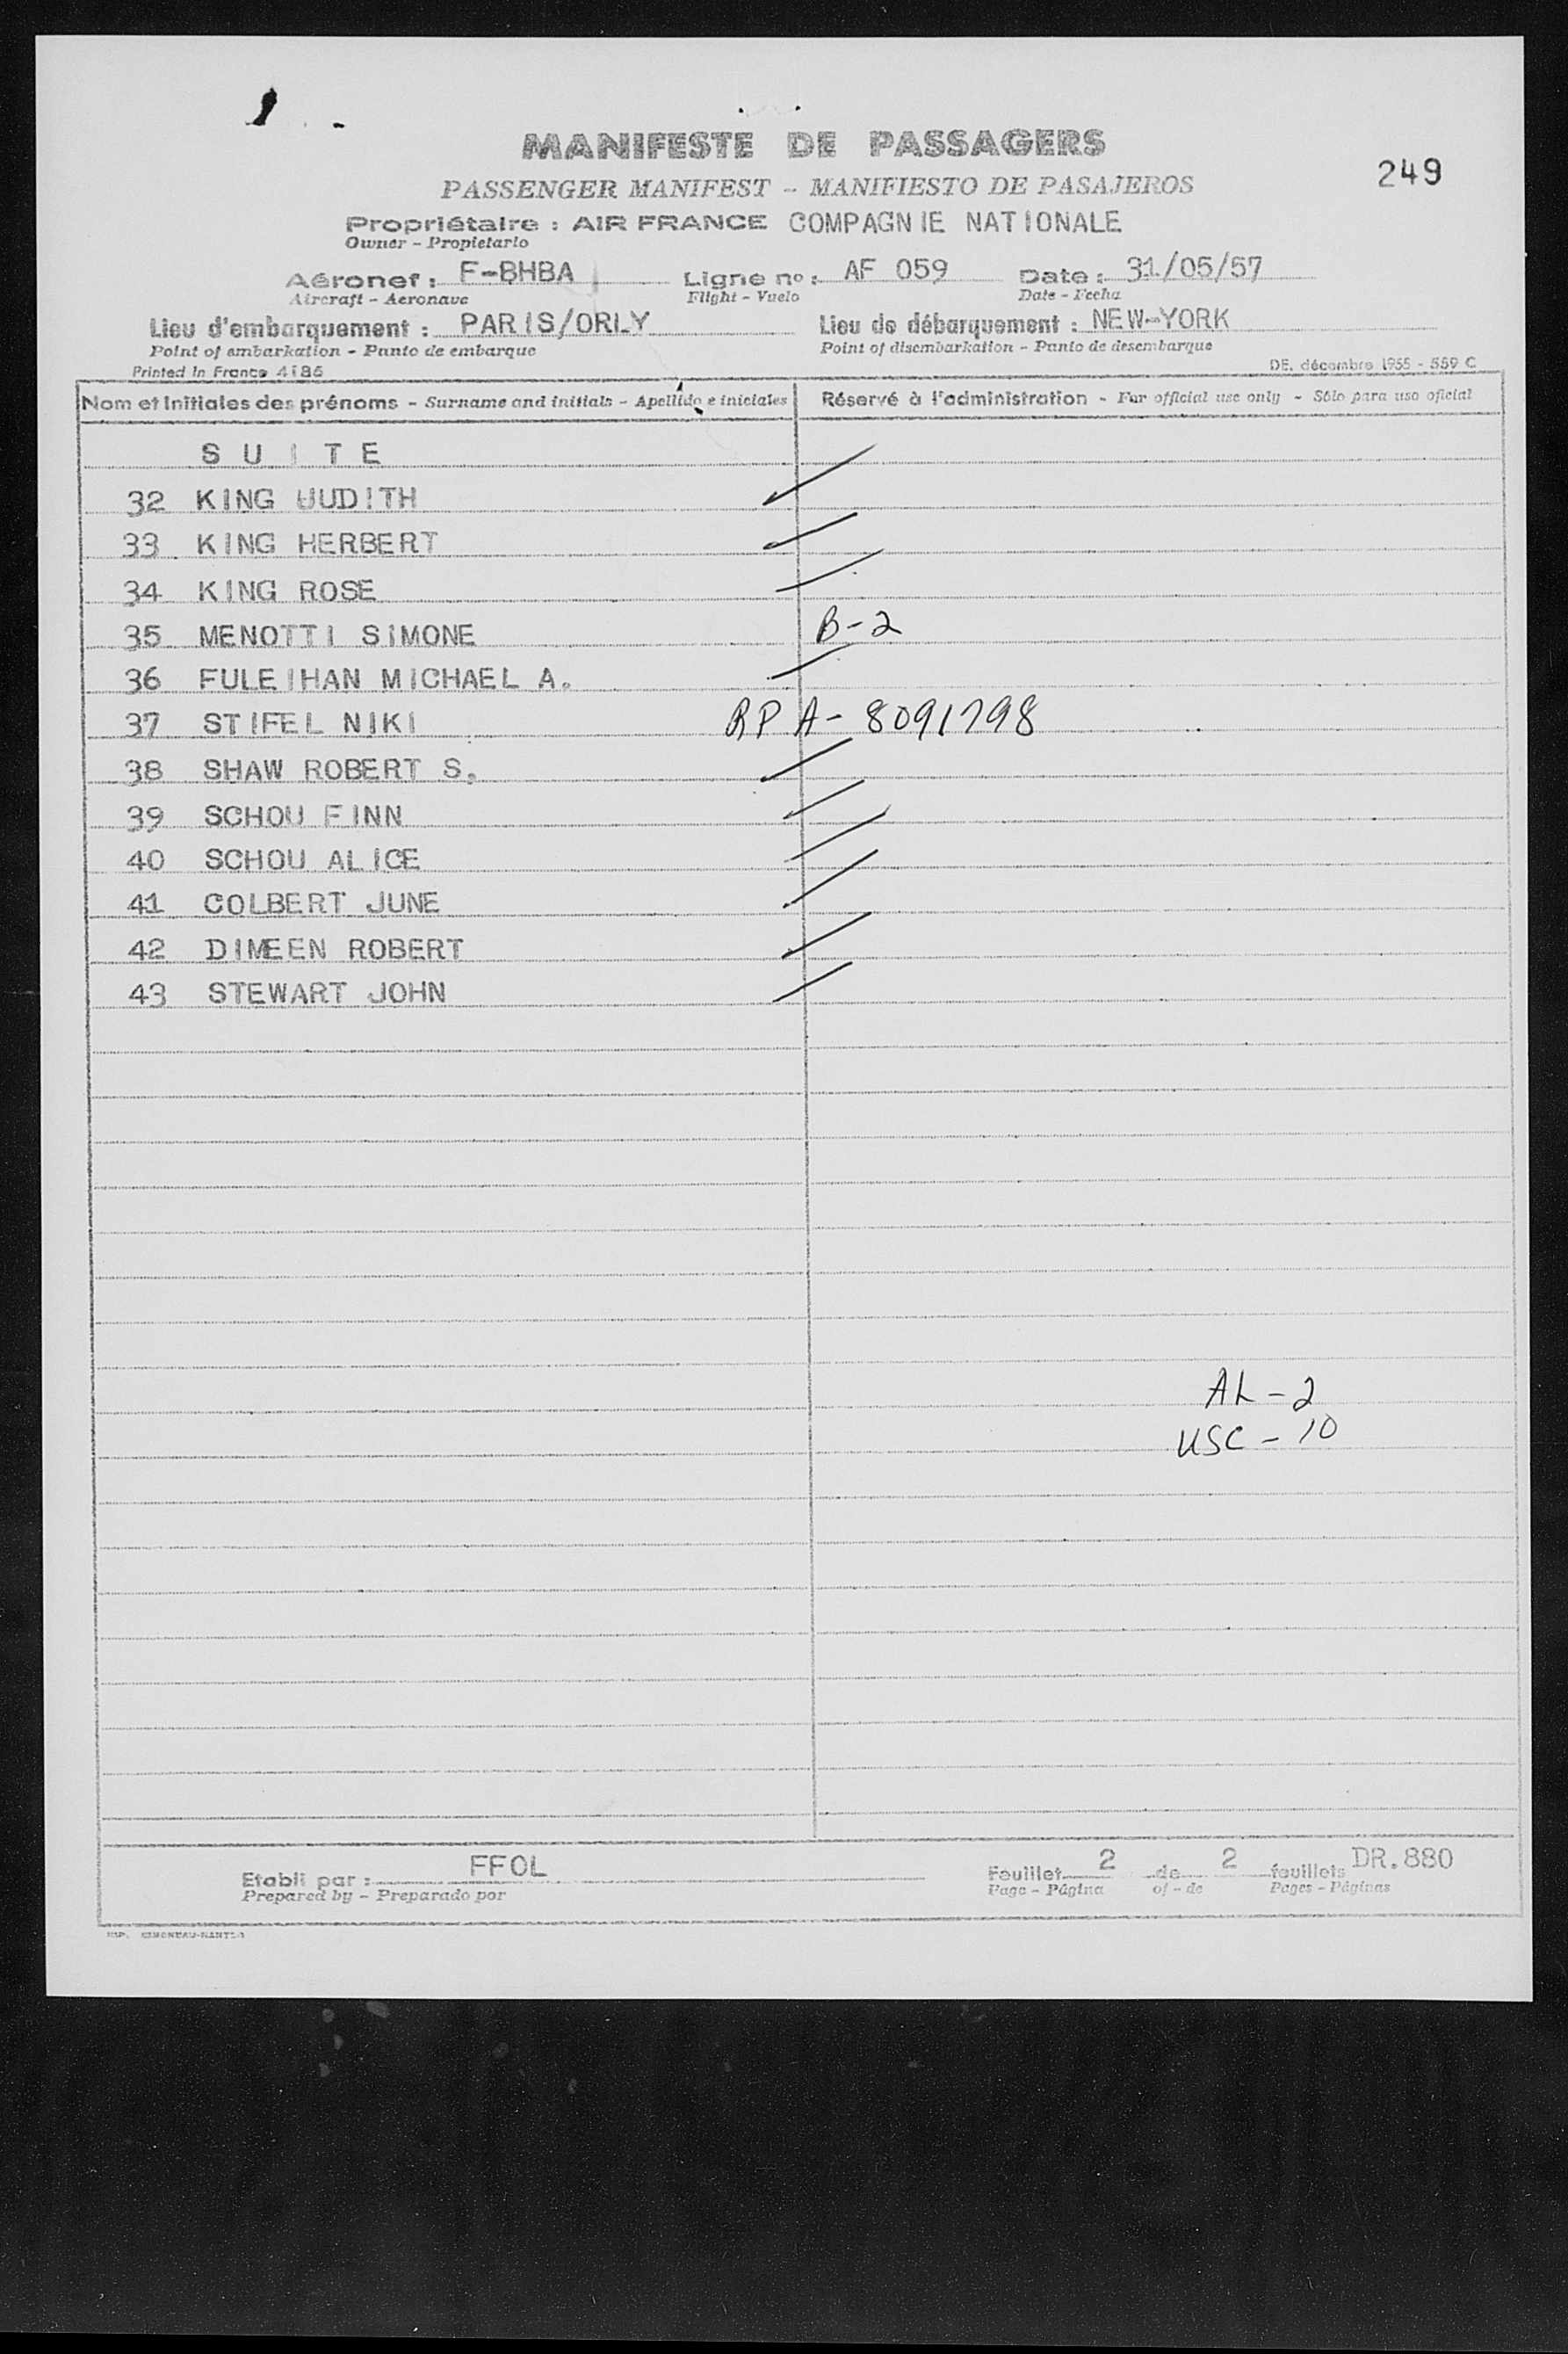 MANIFESTE DE PASSAGERS
249
PASSENGER MANIFEST - MANIFIESTO DE PASAJEROS
Propriétaire : AIR FRANCE COMPAGNIE NATIONALE
Owner - Propietario
Aéronef : F-BHBA Ligne nº : AF 059 Date : 31/05/57
Aircraft - Aeronave Flight - Vuelo Date - Fecha
Lieu d'embarquement : PARIS/ORLY Lieu de débarquement : NEW-YORK
Point of embarkation - Punto de embarque Point of disembarkation - Punto de desembarque
Printed in France 4186 DE. décembre 1955 - 559 C
Nom et Initiales des prénoms - Surname and initials - Apellido e iniciales Réservé à l'administration - For official use only - Sólo para uso oficial
S U I T E
32 KING JUDITH
33 KING HERBERT
34 KING ROSE
35 MENOTTI SIMONE B-2
36 FULEIHAN MICHAEL A.
37 STIFEL NIKI RP A- 8091798
38 SHAW ROBERT S.
39 SCHOU FINN
40 SCHOU ALICE
41 COLBERT JUNE
42 DIMEEN ROBERT
43 STEWART JOHN
AL - 2
USC - 10
Etabli par : FFOL Feuillet 2 de 2 feuillets DR.880
Prepared by - Preparado por Page - Página of - de Pages - Páginas
IMP.